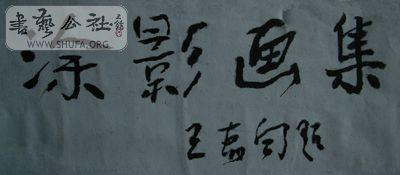 書藝公社
WWW.SHUFA.ORG
涂影画集
王孟句题